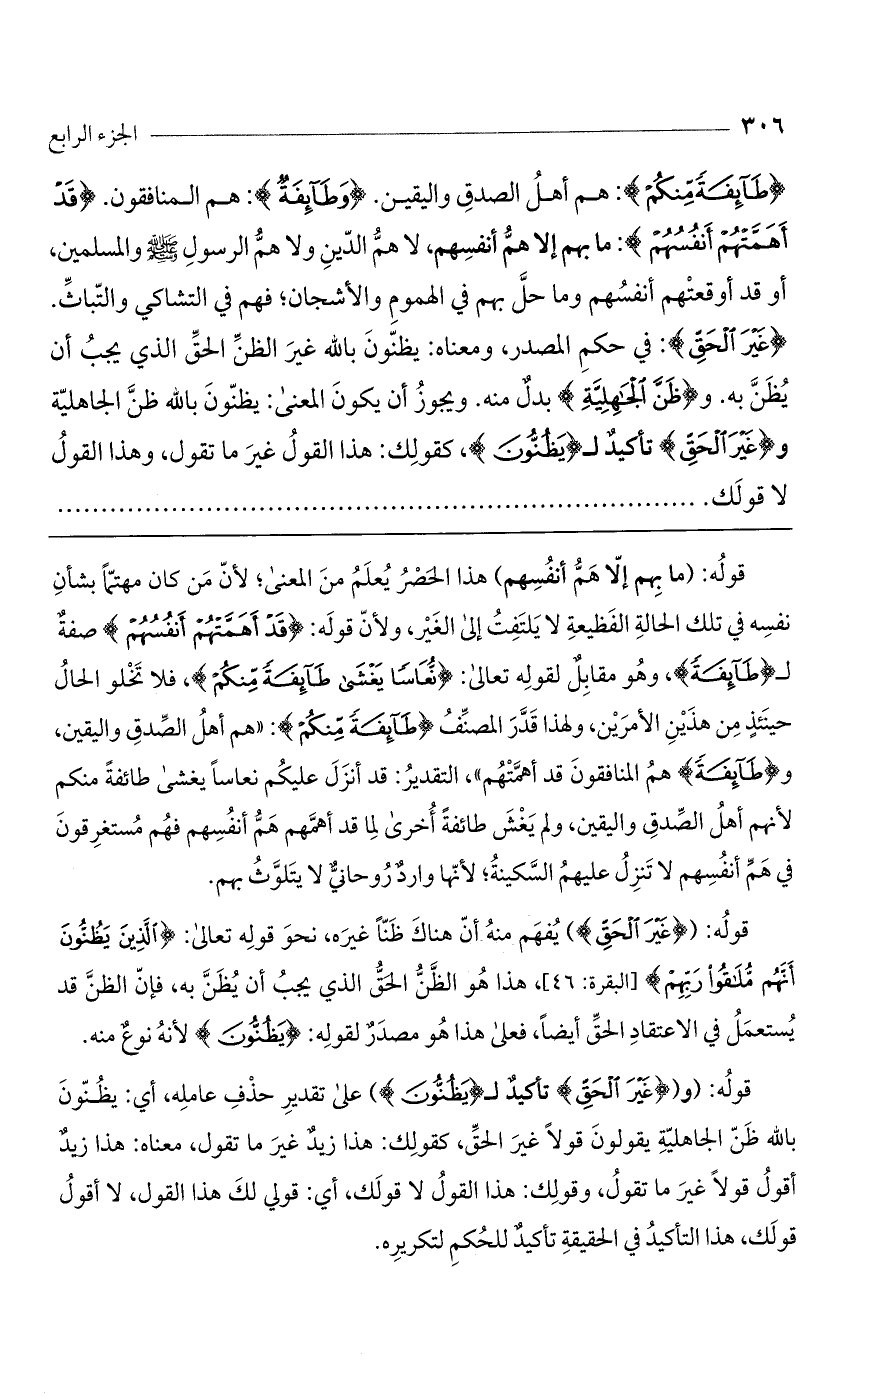 ٣٠٦ ــــــــ الجزء الرابع
﴿طَآئِفَةً مِّنكُمْ﴾: هـم أهـلُ الصدقِ واليقيـن. ﴿وَطَآئِفَةٌ﴾: هـم المـنافقون. ﴿قَدْ
أَهَمَّتْهُمْ أَنفُسُهُمْ﴾: ما بهم إلا همُّ أنفسِهم، لا همُّ الدّينِ ولا همُّ الرسولِ ﷺ والمسلمين،
أو قد أوقعتْهم أنفسُهم وما حلَّ بهم في الهمومِ والأشجان؛ فهم في التشاكي والتّباثِّ.
﴿غَيْرَ ٱلْحَقِّ﴾: في حكمِ المصدر، ومعناه: يظنّونَ بالله غيرَ الظنِّ الحقِّ الذي يجبُ أن
يُظَنَّ به. و﴿ظَنَّ ٱلْجَٰهِلِيَّةِ﴾ بدلٌ منه. ويجوزُ أن يكونَ المعنىٰ: يظنّونَ بالله ظنَّ الجاهليّة
و﴿غَيْرَ ٱلْحَقِّ﴾ تأكيدٌ لـ﴿يَظُنُّونَ﴾، كقولِك: هذا القولُ غيرَ ما تقول، وهذا القولُ
لا قولَك. ........................................................................
قولُه: (ما بِهم إلّا هَمُّ أنفُسِهم) هذا الحَصْرُ يُعلَمُ منَ المعنىٰ؛ لأنّ مَن كان مهتمّاً بشأنِ
نفسِه في تلك الحالةِ الفَظيعةِ لا يَلتَفِتُ إلىٰ الغَيْر، ولأنّ قولَه: ﴿قَدْ أَهَمَّتْهُمْ أَنفُسُهُمْ﴾ صفةٌ
لـ﴿طَآئِفَةً﴾، وهُو مقابِلٌ لقولِه تعالىٰ: ﴿نُّعَاسًا يَغْشَىٰ طَآئِفَةً مِّنكُمْ﴾، فلا تَخْلو الحالُ
حينَئذٍ مِن هذَيْنِ الأمرَيْن، ولهذا قَدَّرَ المصنِّفُ ﴿طَآئِفَةً مِّنكُمْ﴾: «هم أهلُ الصِّدقِ واليقين،
و﴿طَآئِفَةً﴾ همُ المنافقونَ قد أهمَّتْهُم»، التقديرُ: قد أنزَلَ عليكُم نعاساً يغشىٰ طائفةً منكم
لأنهم أهلُ الصِّدقِ واليقين، ولم يَغْشَ طائفةً أُخرىٰ لِما قد أهمَّهم هَمُّ أنفُسِهم فهُم مُستغرِقونَ
في هَمِّ أنفُسِهم لا تَنزِلُ عليهمُ السَّكينةُ؛ لأنّها واردٌ رُوحانيٌّ لا يتَلوَّثُ بهم.
قولُه: (﴿غَيْرَ ٱلْحَقِّ﴾) يُفهَم منهُ أنّ هناكَ ظَنّاً غيرَه، نحوَ قولِه تعالىٰ: ﴿ٱلَّذِينَ يَظُنُّونَ
أَنَّهُم مُّلَٰقُوا۟ رَبِّهِمْ﴾ [البقرة: ٤٦]، هذا هُو الظَّنُّ الحقُّ الذي يجبُ أن يُظَنَّ به، فإنّ الظنَّ قد
يُستعمَلُ في الاعتقادِ الحقِّ أيضاً، فعلىٰ هذا هُو مصدَرٌ لقولِه: ﴿يَظُنُّونَ﴾ لأنهُ نوعٌ منه.
قولُه: (و(﴿غَيْرَ ٱلْحَقِّ﴾ تأكيدٌ لـ﴿يَظُنُّونَ﴾) علىٰ تقديرِ حذْفِ عاملِه، أي: يظُنّونَ
بالله ظَنّ الجاهليّةِ يقولونَ قولاً غيرَ الحقِّ، كقولِك: هذا زيدٌ غيرَ ما تقول، معناه: هذا زيدٌ
أقولُ قولاً غيرَ ما تقولُ، وقولِك: هذا القولُ لا قولَك، أي: قولي لكَ هذا القول، لا أقولُ
قولَك، هذا التأكيدُ في الحقيقةِ تأكيدٌ للحُكمِ لتكريرِه.